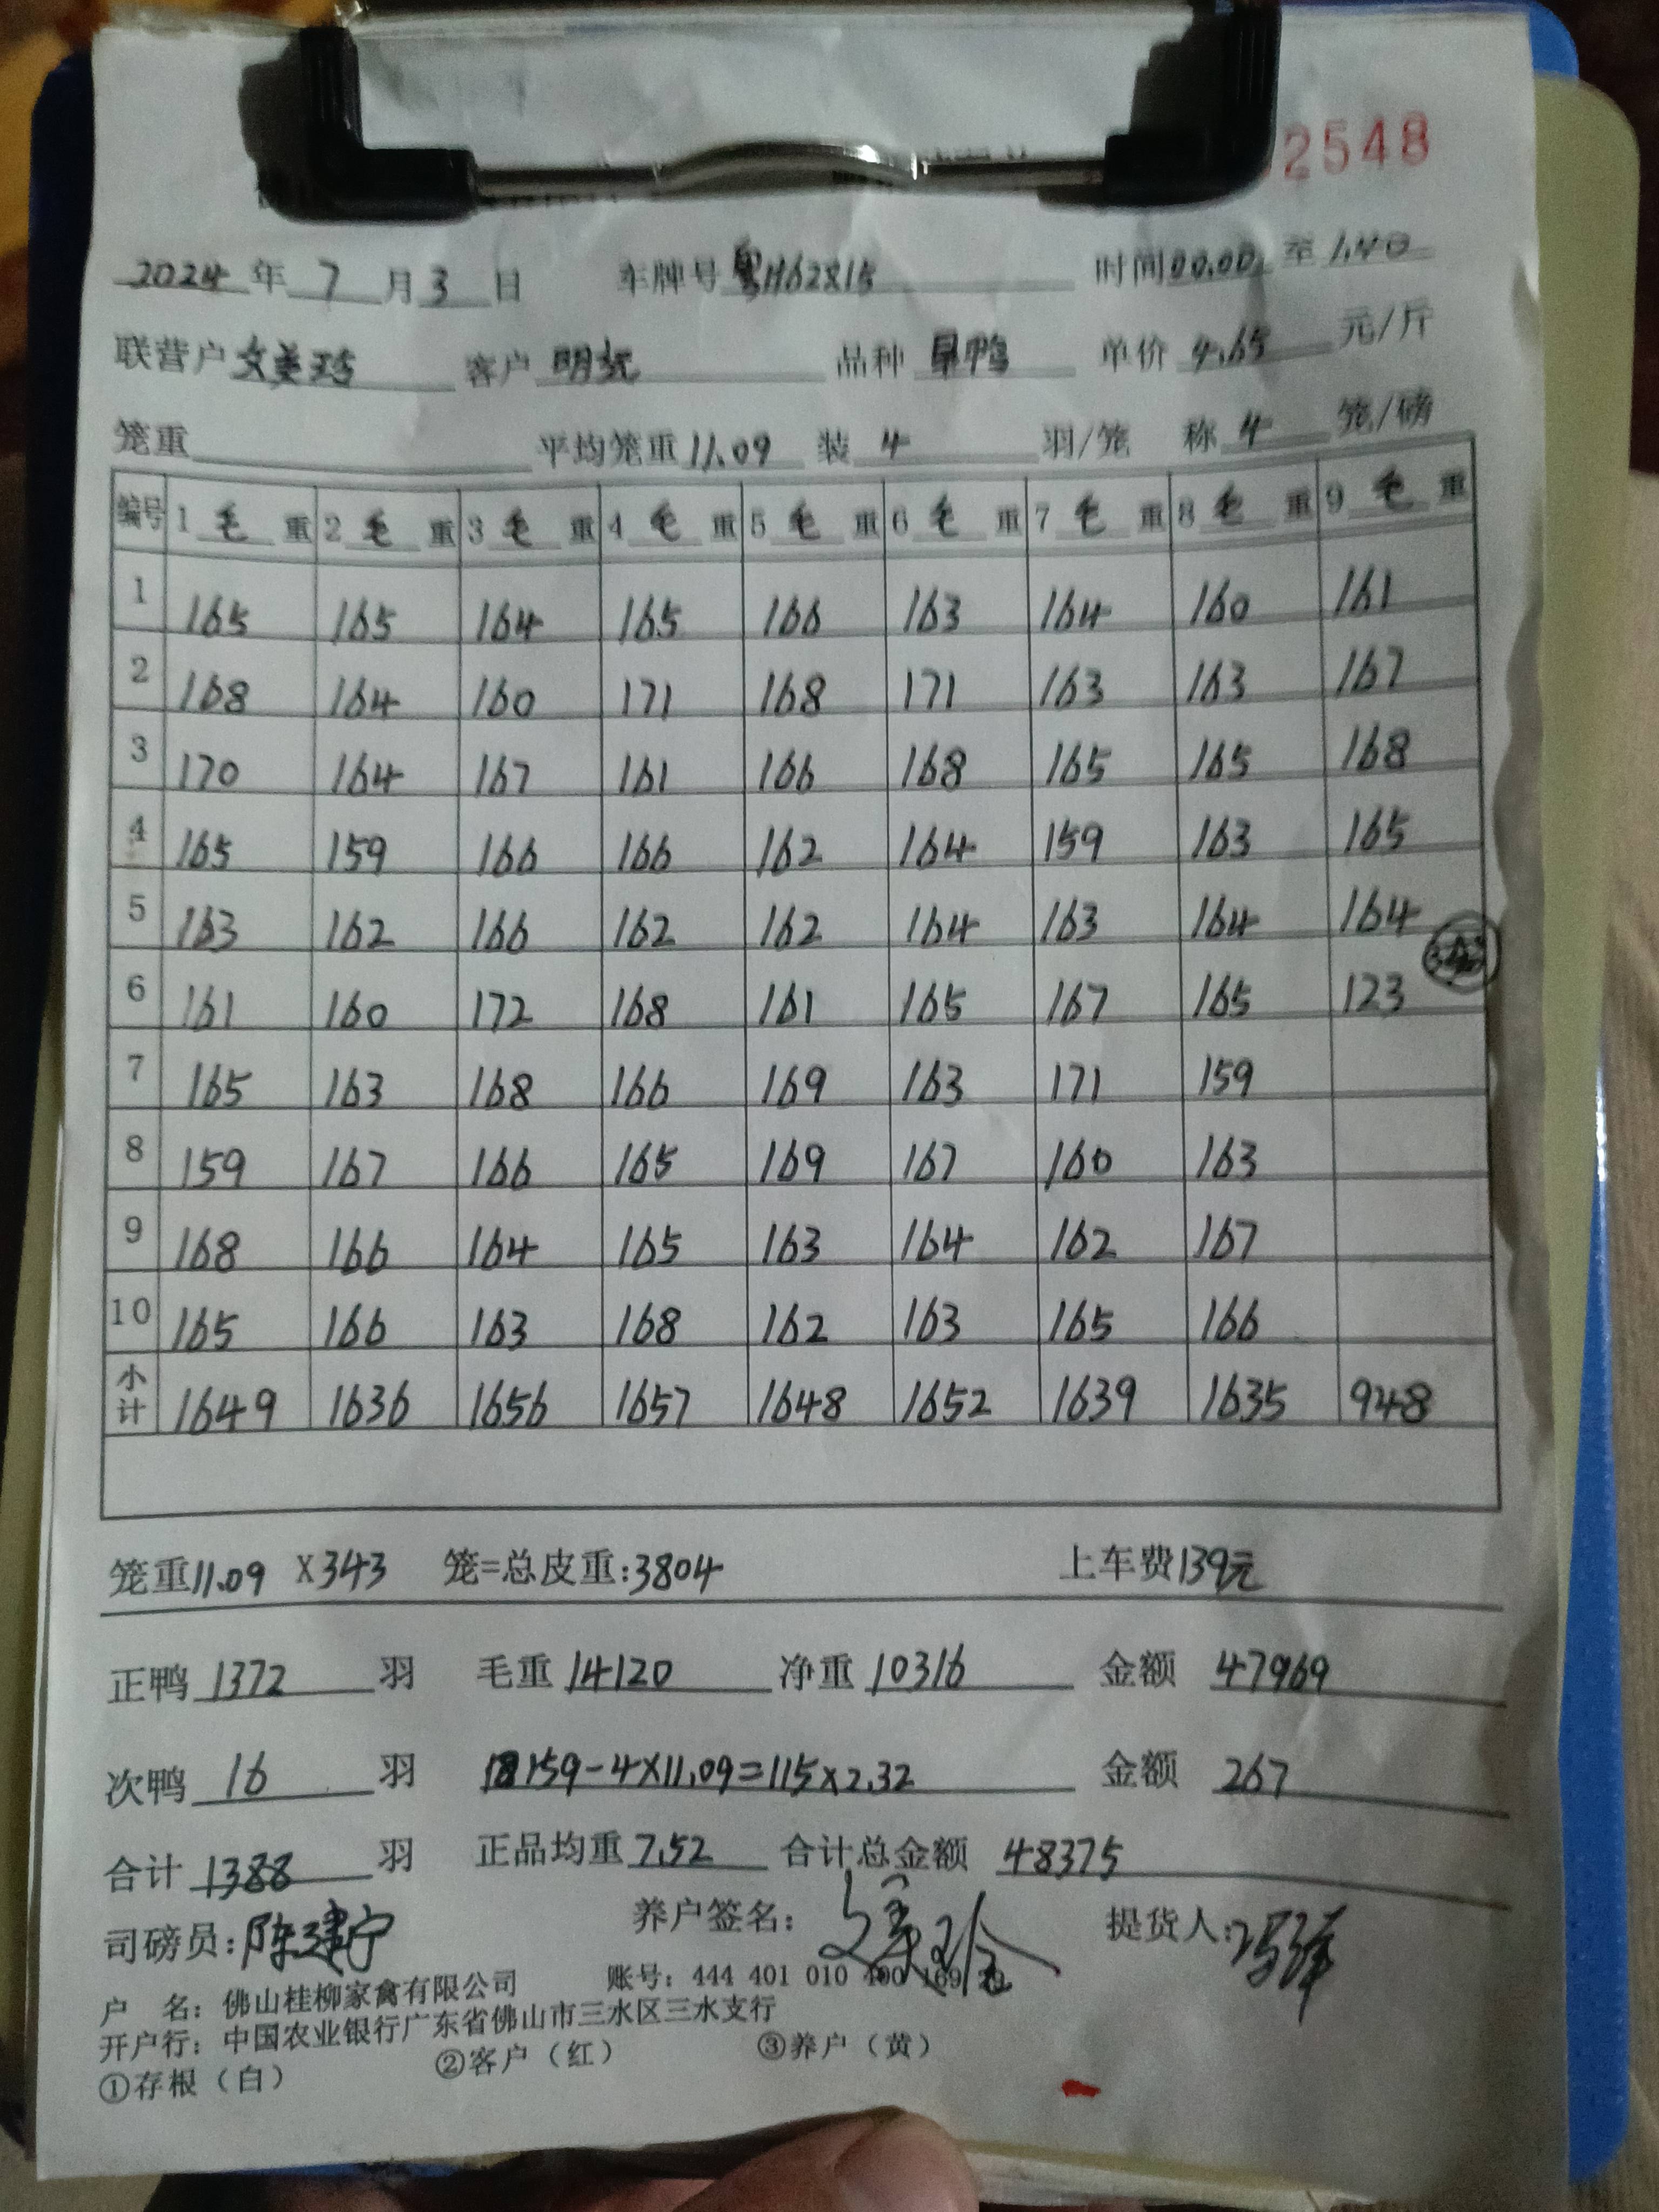 2548
2024年7月3日 车牌号粤H62X15 时间00.00至1.40
联营户文美玲 客户明记 品种旱鸭 单价4.65元/斤
笼重 平均笼重11.09 装4羽/笼 称4笼/磅
编号 1毛重 2毛重 3毛重 4毛重 5毛重 6毛重 7毛重 8毛重 9毛重
1 165 165 164 165 166 163 164 160 161
2 168 164 160 171 168 171 163 163 167
3 170 164 167 161 166 168 165 165 168
4 165 159 166 166 162 164 159 163 165
5 163 162 166 162 162 164 163 164 164
6 161 160 172 168 161 165 167 165 123
7 165 163 168 166 169 163 171 159
8 159 167 166 165 169 167 160 163
9 168 166 164 165 163 164 162 167
10 165 166 163 168 162 163 165 166
小计 1649 1636 1656 1657 1648 1652 1639 1635 948
笼重11.09 X343 笼=总皮重:3804 上车费139元
正鸭1372羽 毛重14120 净重10316 金额47969
次鸭16羽 159-4×11.09=115×2.32 金额267
合计1388羽 正品均重7.52 合计总金额48375
司磅员:陈建宁 养户签名: 文美玲 提货人:
户 名: 佛山桂柳家禽有限公司 账号: 444 401 010 400 169
开户行: 中国农业银行广东省佛山市三水区三水支行
①存根（白） ②客户（红） ③养户（黄）